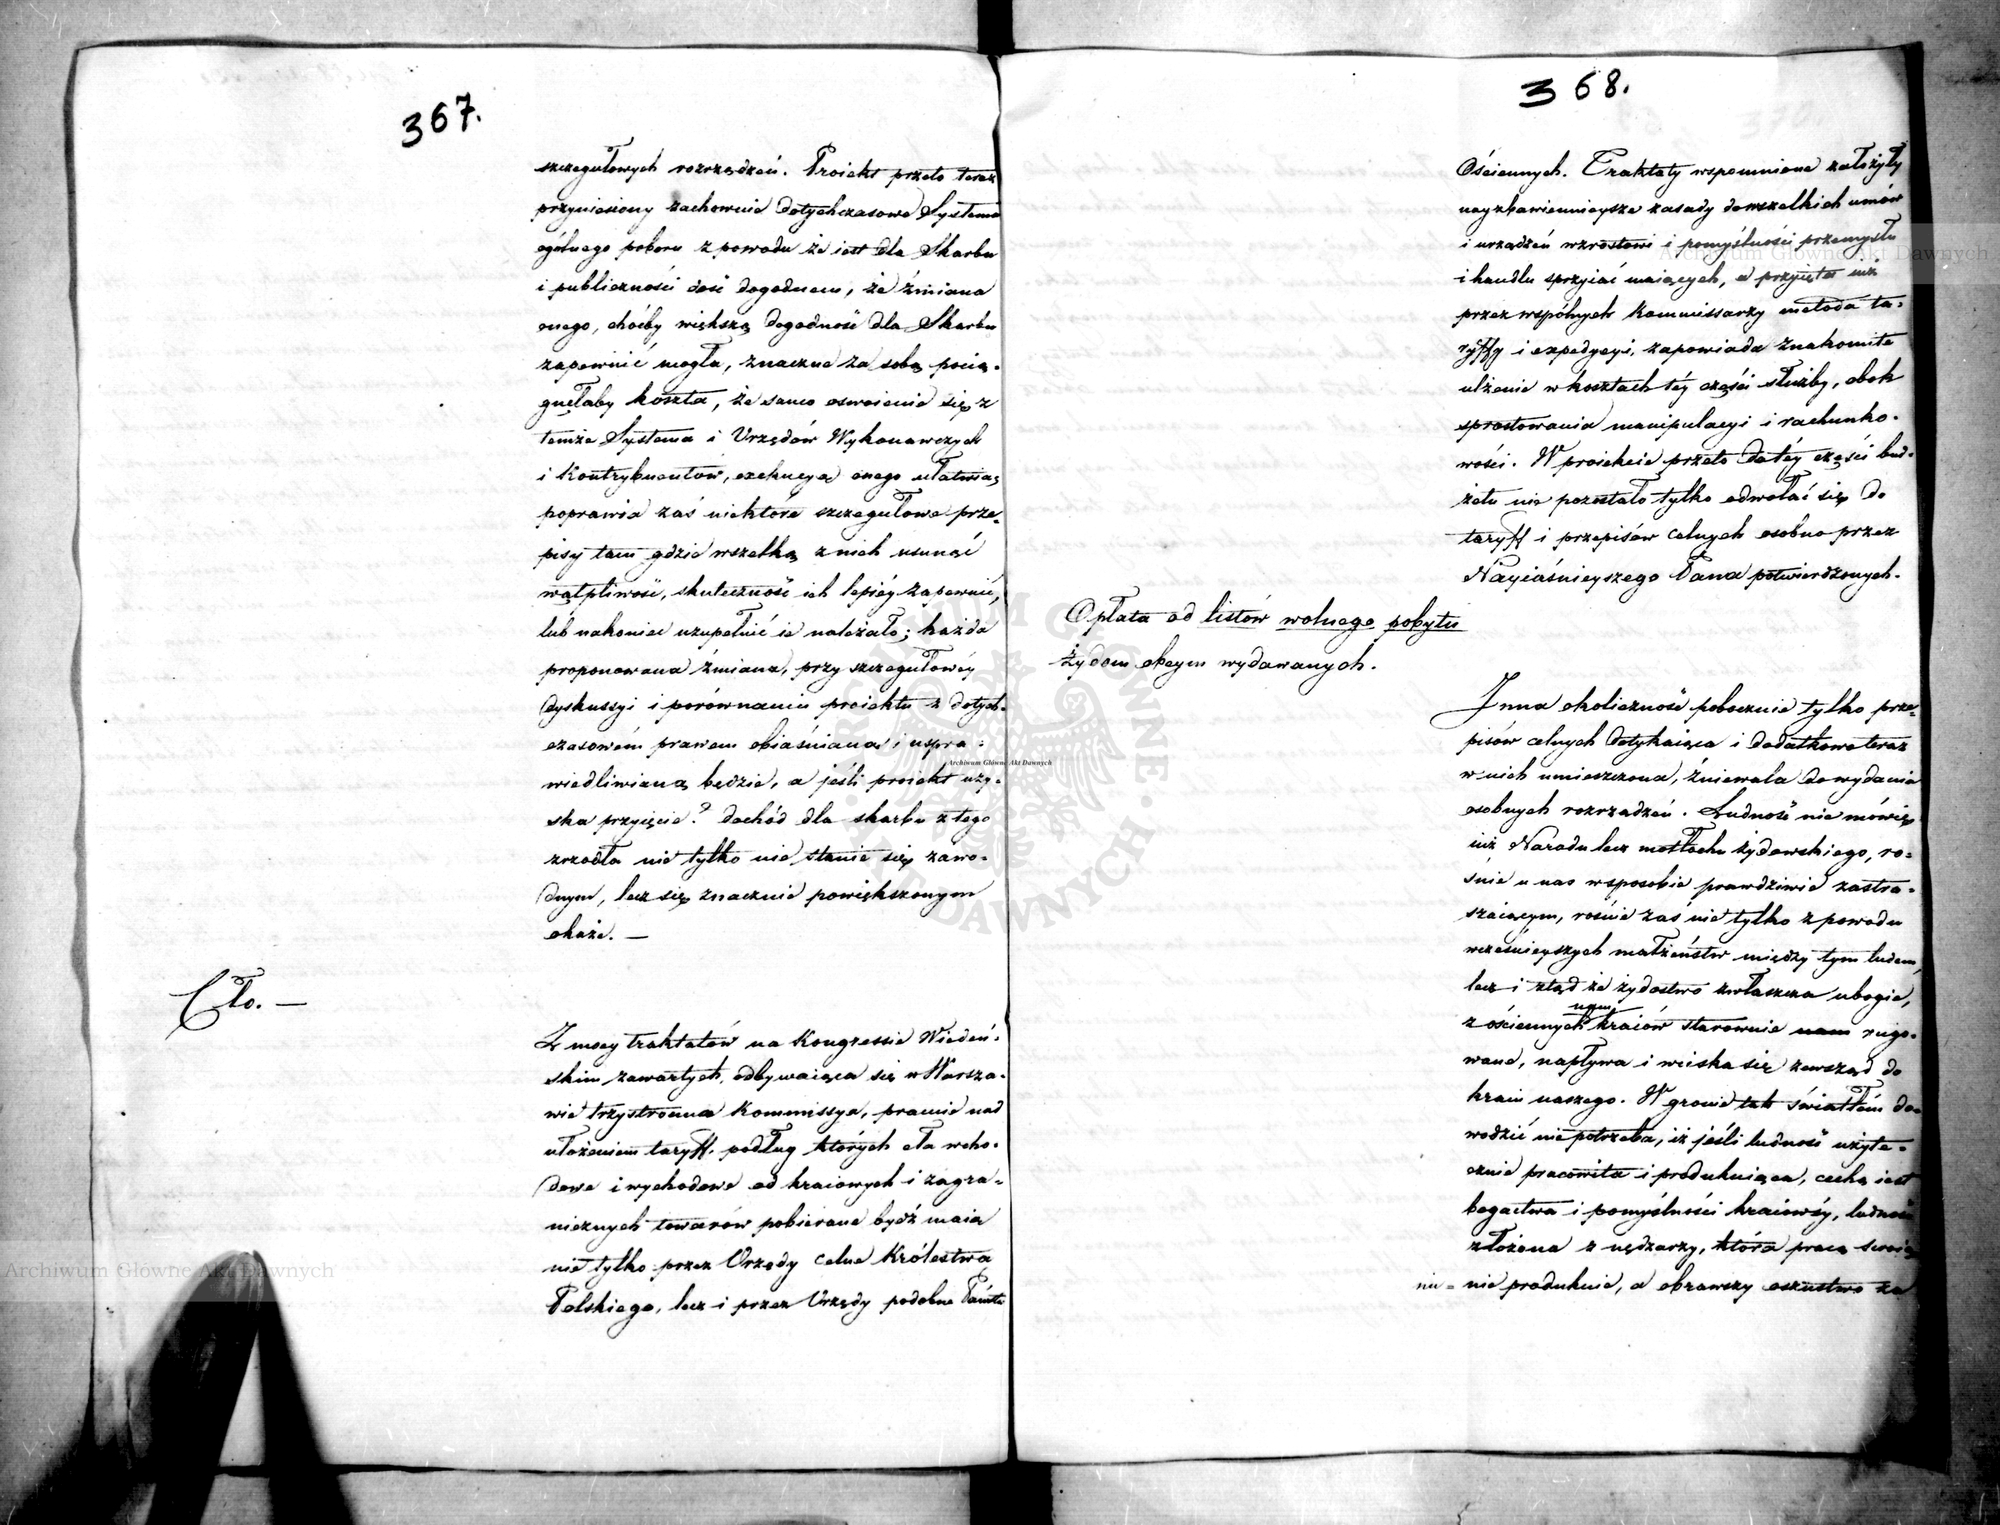 367.
szczegułowych rozrządzeń. Proiekt przeto teraz
przyniesiony zachowuie dotychczasowe Systema
ogólnego poboru z powodu że iest dla Skarbu
i publiczności dość dogodnem, że zmiana
onego, choćby większą dogodność dla Skarbu
zapewnić mogła, znaczne za sobą pocią-
gnęłaby koszta, że samo oswoienie się z
temże Systema i Urzędów Wykonawczych
i Kontrybuentów, exekucyą onego ułatwia;
poprawia zaś niektóre szczegułowe prze-
pisy tam gdzie wszelką z nich usunąć
wątpliwość, skuteczność ich lepiéy zapewnić,
lub nakoniec uzupełnić ie należało; każda
proponowana zmiana, przy szczegułowéy
dyskussyi i porównaniu proiektu z dotych-
czasowém prawem obiaśniana i uspra-
wiedliwianą będzie, a jeśli proiekt uzy-
ska przyięcie? dochód dla skarbu z tego
zrzodła nie tylko nie stanie się zawo-
dnym, lecz się znacznie powiększonym
okaże. —
Cło. —
Z mocy traktatów na Kongressie Wiedeń-
skim zawartych, odbywaiąca się w Warsza-
wie trzystronna Kommissya, pracuie nad
ułożeniem taryff, podług których cła wcho-
dowe i wychodowe od kraiowych i zagra-
nicznych towarów pobierane bydź maią
nie tylko przez Urzędy celne Królestwa
Polskiego, lecz i przez Urzędy podobne Państw
368.
Ościennych. Traktaty wspomnione założyły
nayzbawiennieysze zasady do wszelkich umów
i urządzeń wzrostowi i pomyślności przemysłu
i handlu sprzyiać maiących, a przyięta iuż
przez wspólnych Kommissarzy metoda ta-
ryffy i expedycyi, zapowiada znakomite
ulżenie w kosztach téy części służby, obok
sprostowania manipulacyi i rachunko-
wości. W proiekcie przeto do téy części bud-
żetu nie pozostało tylko odwołać się do
taryff i przepisów celnych osobno przez
Nayiaśnieyszego Pana potwierdzonych.
Opłata od listów wolnego pobytu
żydom obcym wydawanych.
Inna okoliczność pobocznie tylko prze-
pisów celnych dotykaiąca i dodatkowo teraz
w nich umieszczona, zniewala do wydania
osobnych rozrządzeń. Ludność nie mówię
iuż Narodu lecz motłochu żydowskiego, ro-
śnie u nas w sposobie prawdziwie zastra-
szaiącym, rośnie zaś nie tylko z powodu
wcześnieyszych małżeństw między tym ludem,
lecz i ztąd że żydostwo zwłaszcza ubogie,
nam
z ościennych kraiów starownie nam rugo-
wane, napływa i wciska się zewsząd do
kraiu naszego. W gronie tak światłém do-
wodzić nie potrzeba, iż jeśli ludność użyte-
cznie pracowita i produkuiąca, cechą iest
bogactwa i pomyślności kraiowéy, ludność
złożona z nędzarzy, która pracą swoią
nic = nie produkuie, a obrawszy oszustwo za
Archiwum Główne Akt Dawnych
Archiwum Główne Akt Dawnych
Archiwum Główne Akt Dawnych
ARCHIWUM GŁÓWNE AKT DAWNYCH